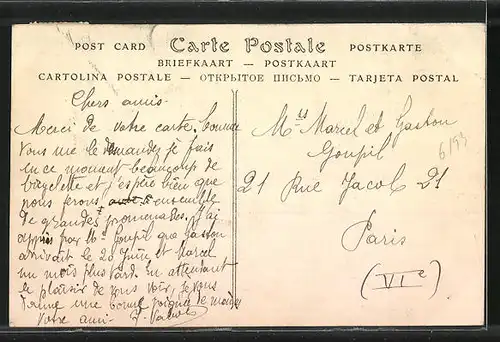 POST CARD Carte Postale POSTKARTE
BRIEFKAART — POSTKAART
CARTOLINA POSTALE — ОТКРЫТОЕ ПИСЬМО — TARJETA POSTAL
Chers amis.
Merci de votre carte. Comme
vous me le demandez je fais
en ce moment beaucoup de
bicyclette et j'espère bien que
nous ferons ensemble
de grandes promenades. J'ai
appris par Me Goupil que Gaston
arrivait le 20 Juin et Marcel
un mois plus tard. En attendant
le plaisir de vous voir, je vous
donne une bonne poignée de main
Votre ami
Mrs Marcel et Gaston
Goupil
21 Rue Jacob 21
Paris
(VIe)
6/53